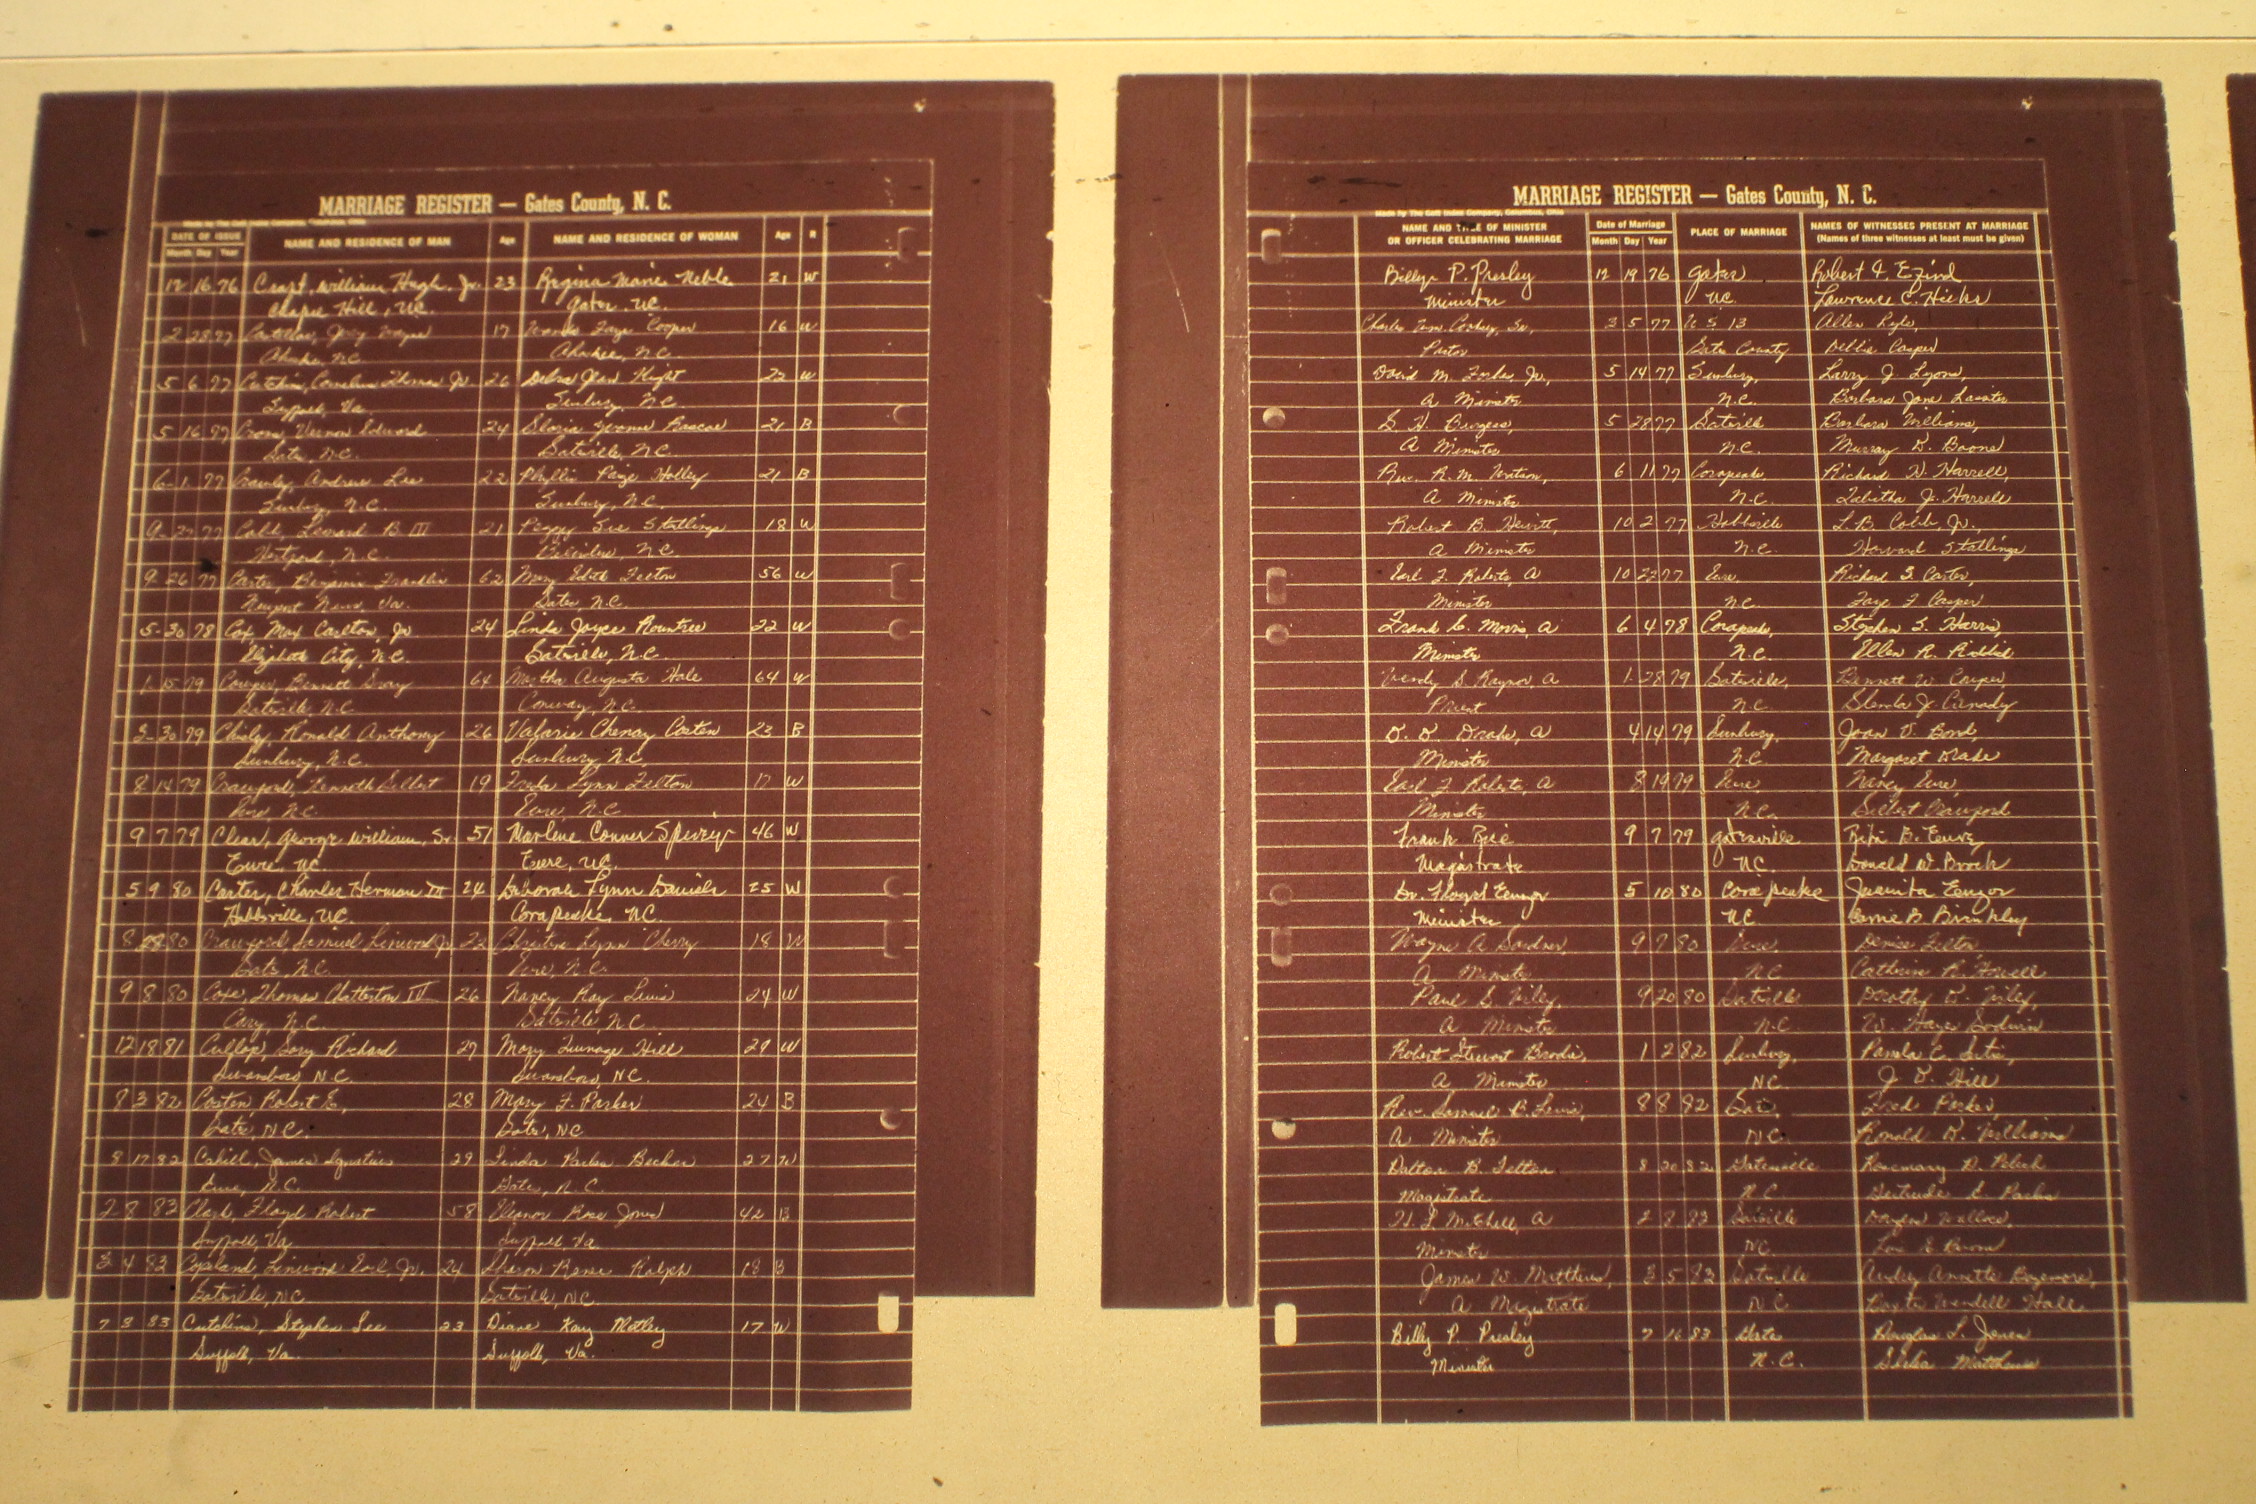 MARRIAGE REGISTER — Gates County, N. C.
DATE OF ISSUE
Month Day Year
NAME AND RESIDENCE OF MAN
Age
NAME AND RESIDENCE OF WOMAN
Age
R
12 16 76 William Hugh, Jr. 23 Regina Marie 21 W
Chapel Hill, NC. Gates, NC.
2 28 77 17 Faye Cooper 16 W
Ahoskie, N.C. Ahoskie, N.C.
5 6 77 Cutchin, Cornelius Thomas Jr 26 Debra Jean Hight 22 W
Suffolk, Va. Sunbury, N.C.
5 16 77 Vernon Edward 24 Gloria Yvonne Rascoe 21 B
Gates, N.C. Gatesville, N.C.
6-1-77 Andrew Lee 22 Phyllis Paige Holley 21 B
Sunbury, N.C. Sunbury, N.C.
9-27-77 Cobb, Leonard B III 21 Peggy Sue Stallings 18 W
Hertford, N.C. N.C.
9 26 77 Carter, Benjamin Franklin 62 Mary Edith Felton 56 W
Newport News, Va. Gates, N.C.
5-30 78 Cox, Max Carlton, Jr 24 Linda Joyce Rountree 22 W
Elizabeth City, N.C. Gatesville, N.C.
1-15 79 Cowper, Bennett Gray 64 Martha Augusta Hale 64 W
Gatesville, N.C. Conway, N.C.
3-30 79 Chisly, Ronald Anthony 26 Valarie Chenay Costen 23 B
Sunbury, N.C. Sunbury, N.C.
8 14 79 Crawford, Kenneth Delbert 19 Freda Lynn Felton 17 W
Eure, N.C. Eure, N.C.
9 7 79 George William, Sr. 51 Marlene Conner Spivey 46 W
Eure, NC. Eure, NC.
5 9 80 Carter, Charles Herman III 24 Deborah Lynn Daniels 25 W
Hobbsville, NC. Corapeake, NC.
8 28 80 Crawford, Samuel Linwood Jr 22 Christine Lynn Cherry 18 W
Gates, N.C. Eure, N.C.
9 8 80 Coxe, Thomas Chatterton IV 26 Nancy Ray Lewis 24 W
Cary, N.C. Gatesville, N.C.
12 18 81 Gary Richard 27 Mary Turnage Hill 29 W
Swansboro, N.C. Swansboro, NC.
8 3 82 Costen, Robert E, 28 Mary F. Parker 24 B
Gates, N.C. Gates, NC
8 17 82 Cahill, James Ignatius 29 Linda Parker Becker 27 W
Eure, N.C. Gates, N.C.
2 8 83 Floyd Robert 58 Eleanor Rose Jones 42 B
Suffolk, Va. Suffolk, Va
3 4 83 Copeland, Linwood Earl, Jr. 24 Sharon Renee Ralph 18 B
Gatesville, NC Gatesville, NC
7 8 83 Cutchins, Stephen Lee 23 Diane Kay Motley 17 W
Suffolk, Va. Suffolk, Va.
MARRIAGE REGISTER — Gates County, N. C.
Made by The Cott Index Company, Columbus, Ohio
NAME AND TITLE OF MINISTER
OR OFFICER CELEBRATING MARRIAGE
Date of Marriage
Month Day Year
PLACE OF MARRIAGE
NAMES OF WITNESSES PRESENT AT MARRIAGE
(Names of three witnesses at least must be given)
Billy P. Presley 12 19 76 Gates Robert
Minister NC. Lawrence C. Hicks
Charles Wm. Sr., 3 5 77 U S 13 Allen Lyle,
Pastor Gates County Debbie Casper
David M. Forbes Jr, 5 14 77 Sunbury, Larry J. Lyons,
A Minister N.C. Barbara Jane Lassiter
G. H. Burgess, 5 28 77 Gatesville Barbara Williams,
A Minister N.C. Murray D. Boone
Rev. R. M. Watson, 6 11 77 Corapeake Richard H. Harrell,
A Minister N.C. Tabitha J. Harrell
Robert B. Hewitt, 10 2 77 Hobbsville L. B. Cobb, Jr.,
A Minister N.C. Howard Stallings
Earl F. Roberts, A 10 22 77 Eure Richard G. Carter,
Minister N.C. Faye F Casper
Frank C. Morris, A 6 4 78 Corapeake, Stephen S. Harris,
Minister N.C. Ellen R. Riddick
S. Raynor, A 1-28 79 Gatesville, Bennett W. Cowper,
Priest N.C. Glenda J. Canady
D. D. Drake, A 4 14 79 Sunbury, Joan V. Bond,
Minister N.C. Margaret Drake
Earl F. Roberts, A 8 19 79 Eure Nancy Eure,
Minister N.C. Delbert Crawford
Frank Rice 9 7 79 Gatesville
Magistrate NC. Donald W. Brock
Dr. Floyd 5 10 80 Corapeake Juanita
Minister NC Carrie B. Brinkley
Wayne A. Gardner, 9 7 80 Eure Denise Felton
A Minister N.C Catherine R. Howell
Paul G. Wiley, 9 20 80 Gatesville Dorothy D. Wiley,
A Minister N.C. W. Haye Godwin
Robert Stewart Brodie, 1 2 82 Sunbury, Pamela C.
A Minister NC. J. D. Hill
Rev. Samuel B. Lewis, 8 8 82 Gates, Fred Parker,
A Minister N.C. Ronald D. Williams
Dalton B. Felton 8 20 82 Gatesville Rosemary D.
Magistrate N.C. Gertrude E. Parker
H. L. Mitchell, A 2 8 83 Gatesville Wallace,
Minister NC.
James W. Matthews, 3 5 83 Gatesville Audrey Annette Bazemore,
A Magistrate NC Baxter Wendell Hall
Billy P. Presley 7 16 83 Gates Douglas L. Jones
Minister N.C. Matthews